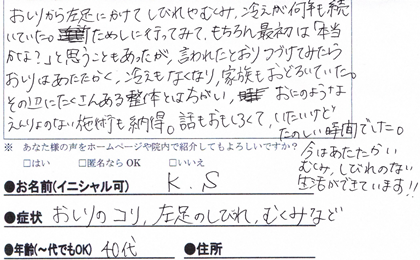 おしりから左足にかけてしびれやむくみ,冷えが何年も続
いていた。ためしに行ってみて、もちろん最初は「本当
かよ?」と思うこともあったが,言われたとおりつづけてみたら
おしりはあたたかく,冷えもなくなり,家族もおどろいていた。
その辺にたくさんある整体とはちがい,おにのような
えんりょのない施術も納得。話もおもしろくて,いたいけど
たのしい時間でした。
※ あなた様の声をホームページや院内で紹介してもよろしいですか?
□はい □匿名なら OK □いいえ
今はあたたかい
むくみ,しびれのない
生活ができています!!
●お名前(イニシャル可) K.S
●症状 おしりのコリ,左足のしびれ,むくみなど
●年齢(~代でもOK) 40代 ●住所